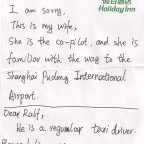 Holiday Inn
I am sorry.
This is my wife,
She is the co-pilot, and she is
familiar with the way to the
Shanghai Pudong International
Airport.
Dear Ralf,
He is a regular taxi driver.